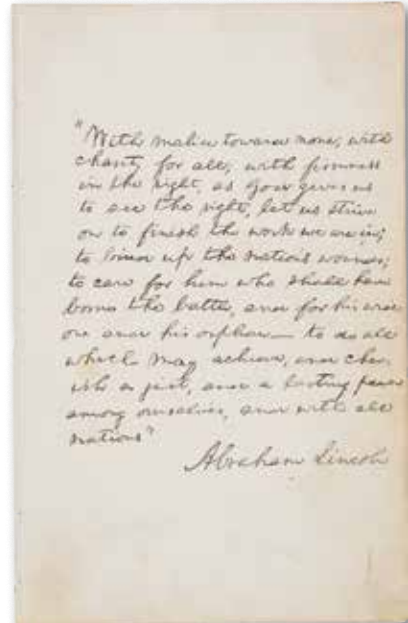 "With malice toward none, with
charity for all, with firmness
in the right, as God gives us
to see the right, let us strive
on to finish the work we are in;
to bind up the nations wounds;
to care for him who shall have
borne the battle, and for his wid-
ow and his orphan— to do all
which may achieve, and cher-
ish a just, and a lasting peace
among ourselves, and with all
nations"
Abraham Lincoln